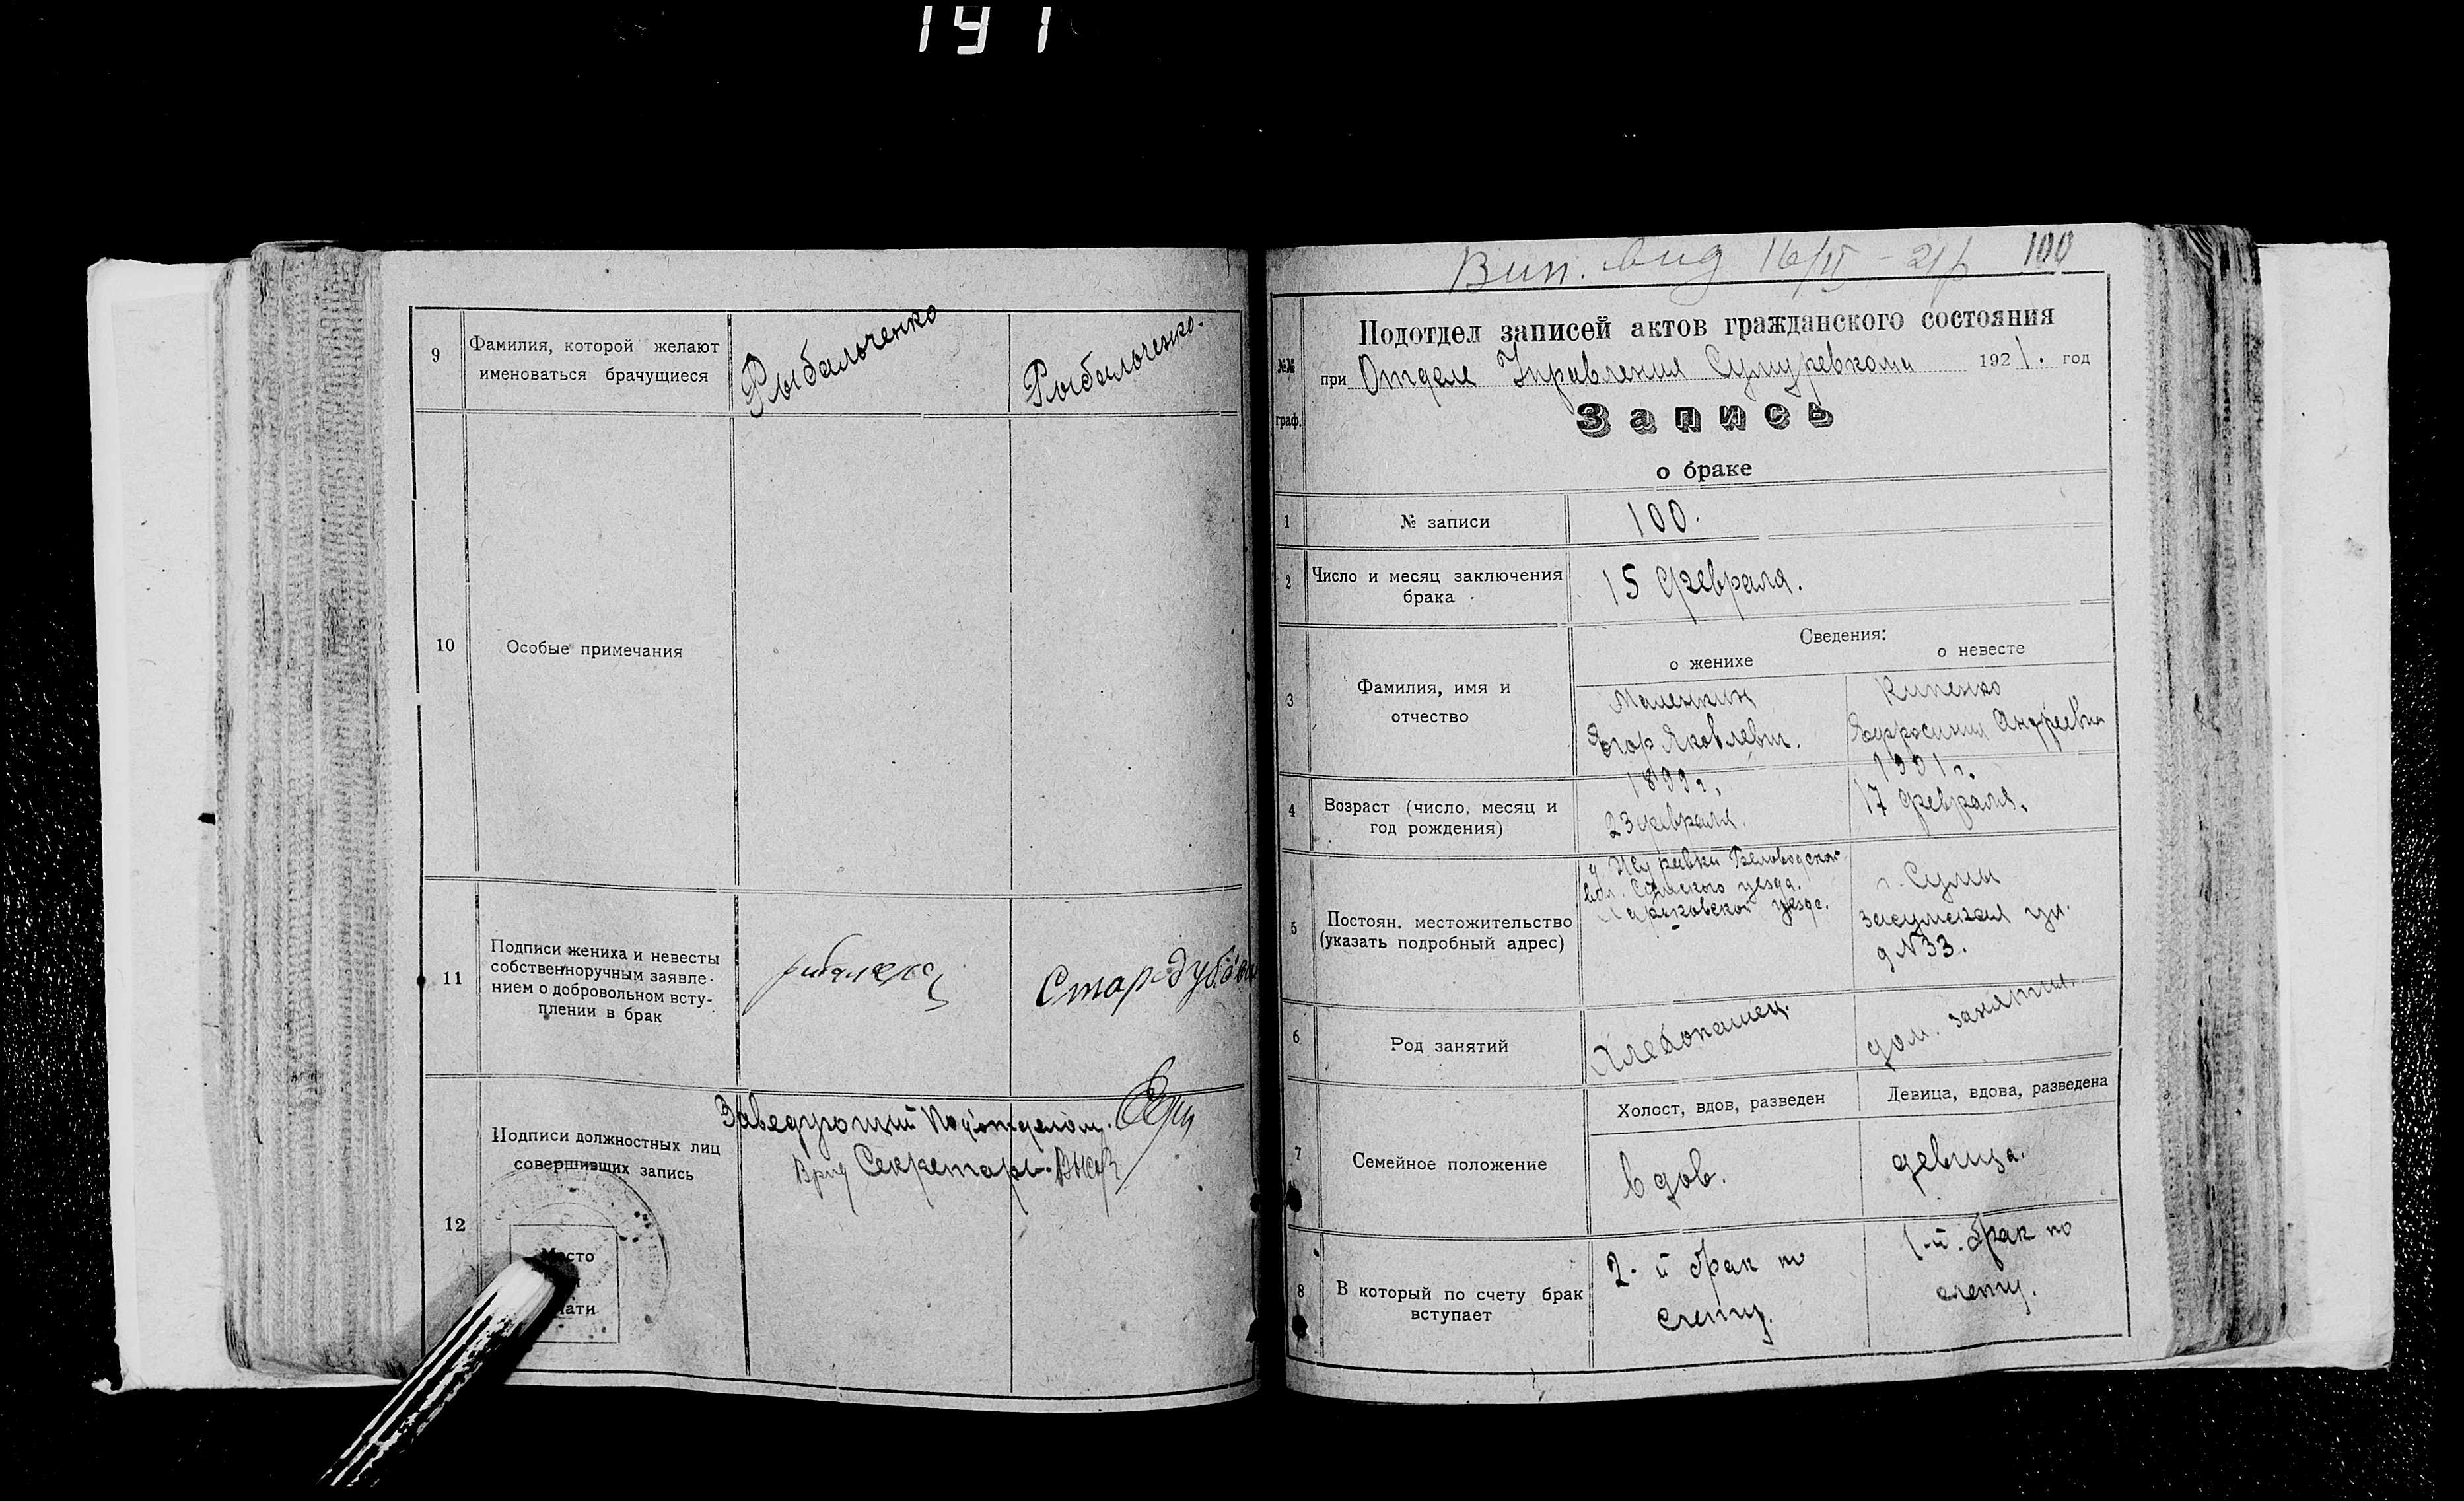 191
9
Фамилия, которой желают
именоваться брачущиеся
Рыбальченко
Рыбальченко.
10
Особые примечания
11
Подписи жениха и невесты
собственноручным заявле-
нием о добровольном всту-
плении в брак
Стародубова
12
Подписи должностных лиц
совершивших запись
Заведующий Подотделом.
Врид Секретарь
Место
100
№№
граф.
Подотдел записей актов гражданского состояния
при Отделе Управления Сумуревкома 1921. год
Запись
о браке
1
№ записи
100.
2
Число и месяц заключения
брака
15 февраля.
Сведения:
о женихе
о невесте
3
Фамилия, имя и
отчество
Маленкин
Егор Яковлевич.
Кипенко
Ефросиния Андреевна
4
Возраст (число, месяц и
год рождения)
1899 г.
23 февраля.
1901 г.
17 февраля.
5
Постоян. местожительство
(указать подробный адрес)
Беловодской
вол. Сумского уезда.
Харьковской уезда.
г. Сумы
Засумская ул.
д № 33.
6
Род занятий
Хлебопашец.
дом. занятия.
7
Семейное положение
Холост, вдов, разведен
Девица, вдова, разведена
вдов.
девица.
8
В который по счету брак
вступает
2-й брак по
счету.
1-й брак по
счету.